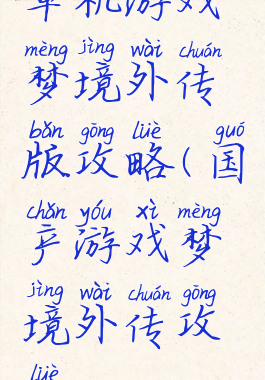 单机游戏
mèng jìng wài chuán
梦境外传
bǎn gōng lüè guó
版攻略(国
chǎn yóu xì mèng
产游戏梦
jìng wài chuán gōng
境外传攻
lüè